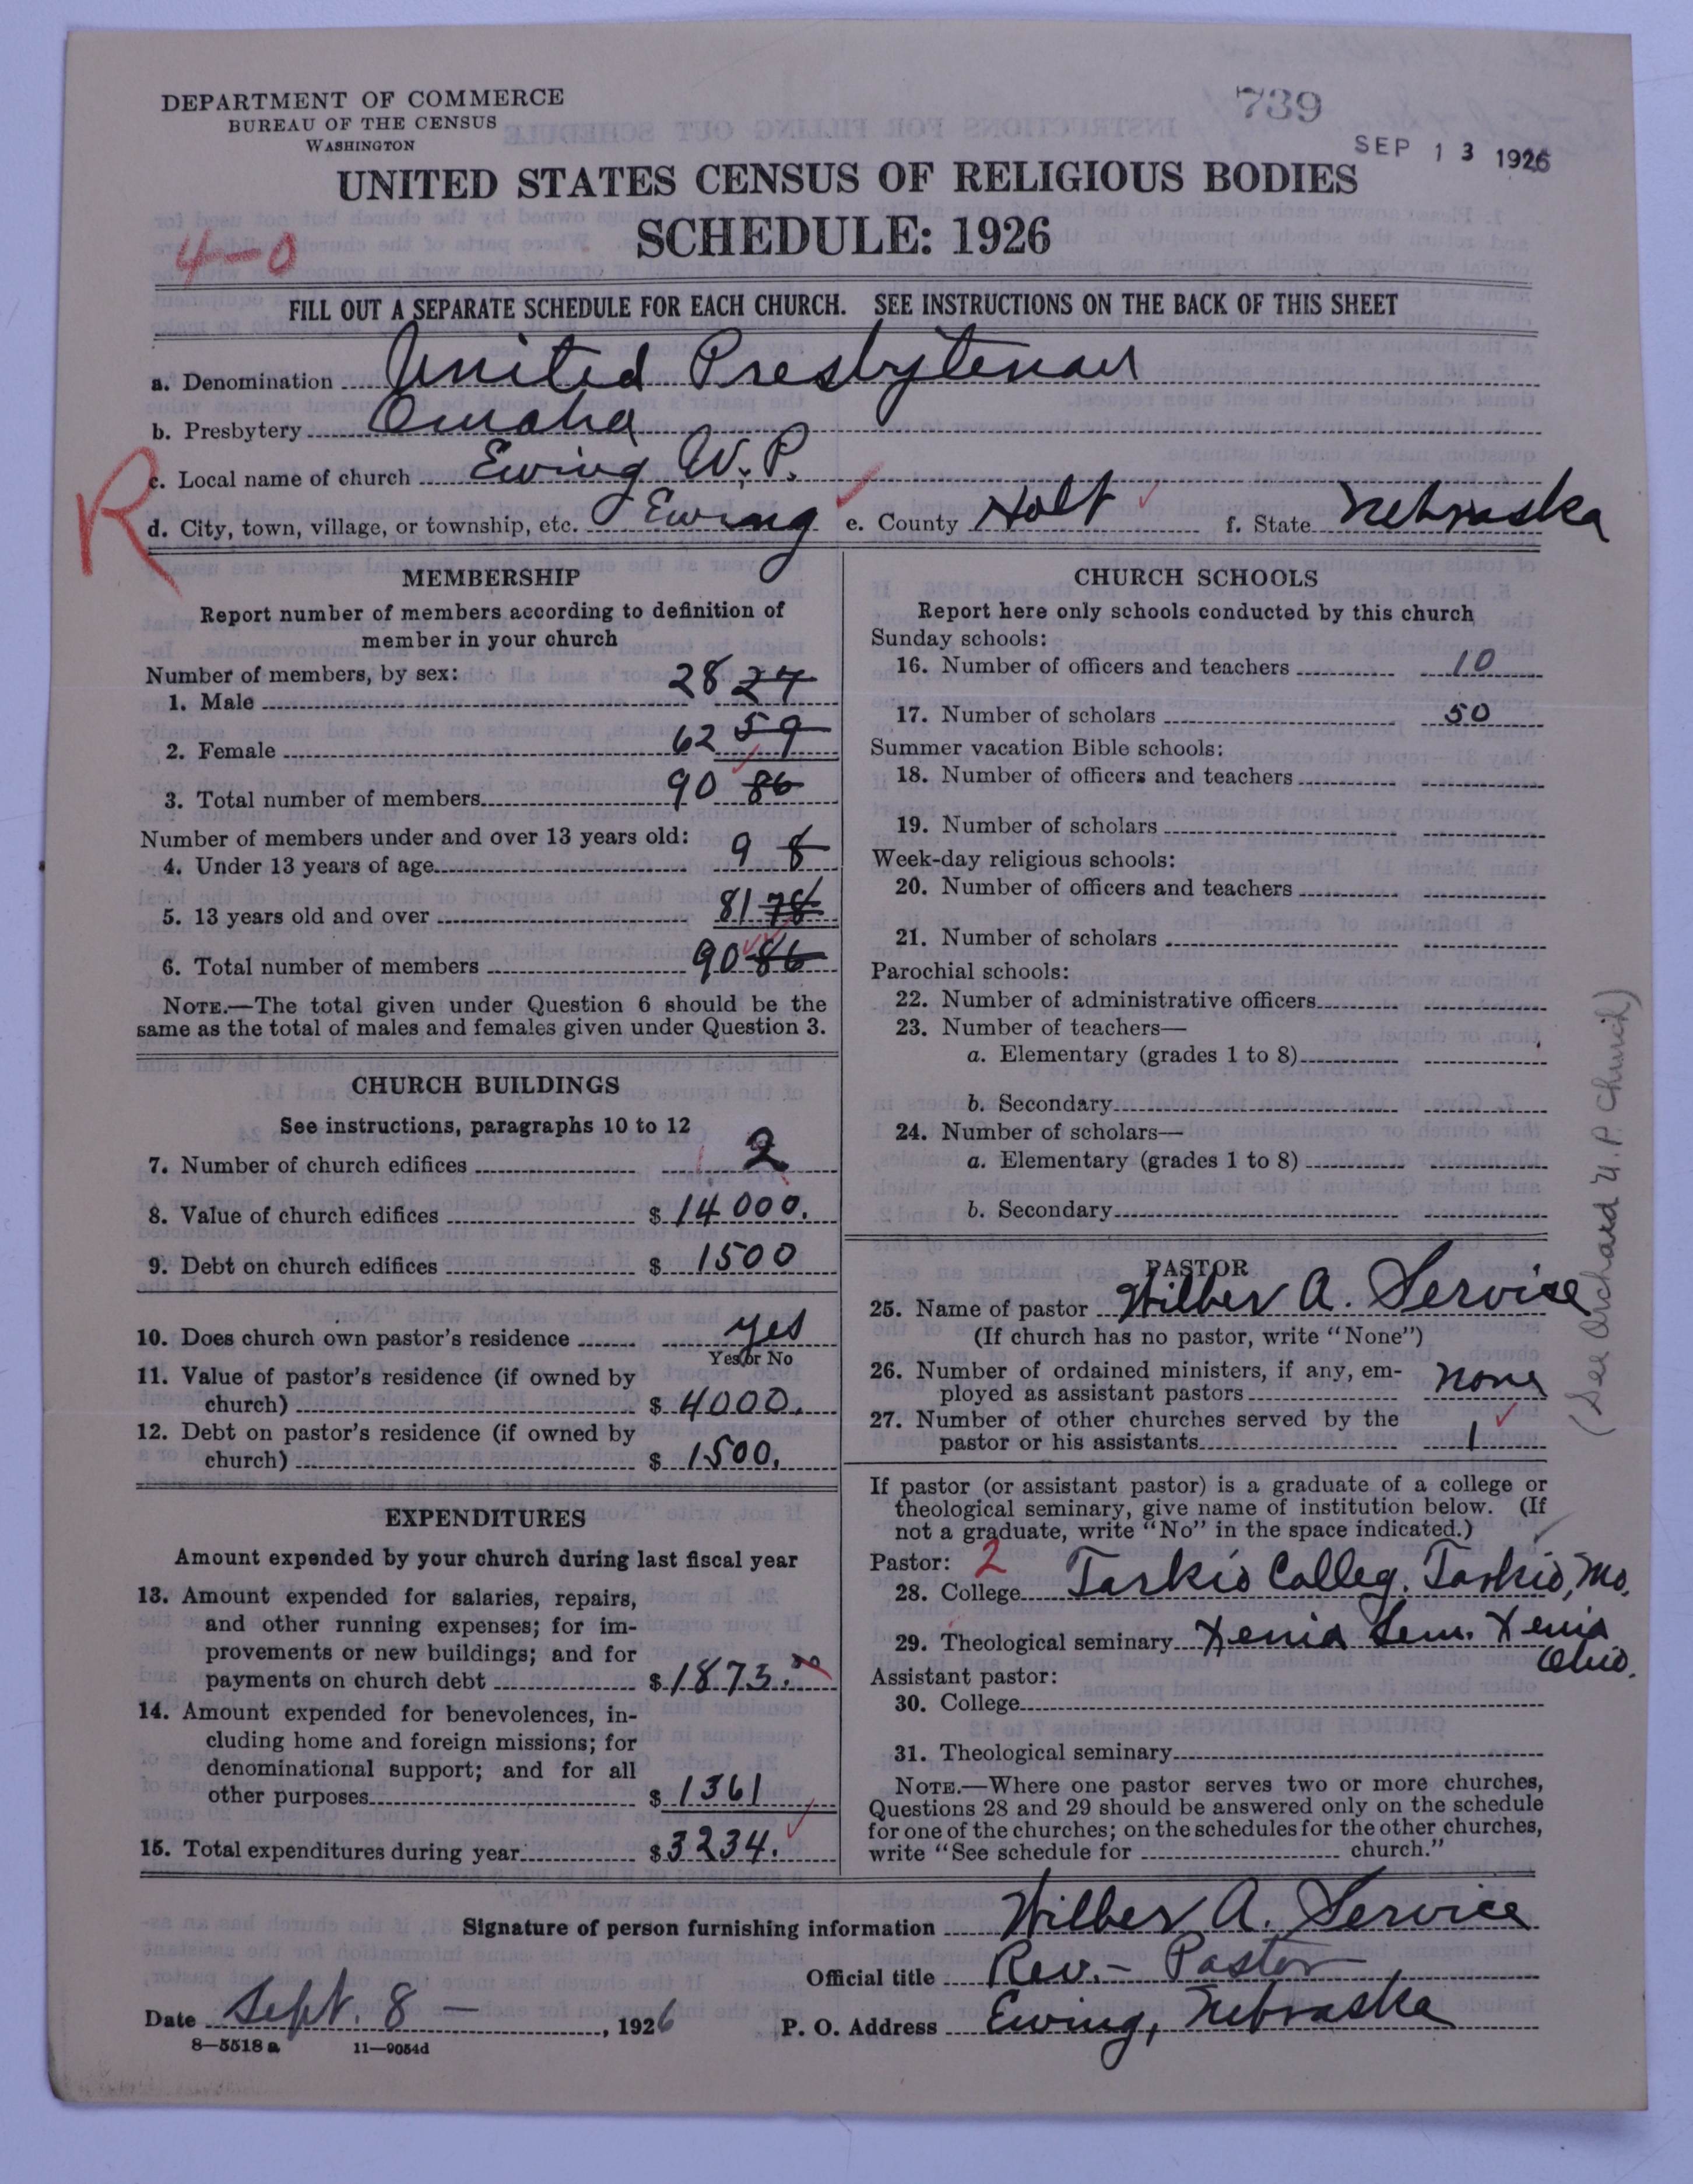 DEPARTMENT OF COMMERCE
BUREAU OF THE CENSUS
WASHINGTON
739
SEP 13 1926
UNITED STATES CENSUS OF RELIGIOUS BODIES
SCHEDULE: 1926
4-0
FILL OUT A SEPARATE SCHEDULE FOR EACH CHURCH. SEE INSTRUCTIONS ON THE BACK OF THIS SHEET
a. Denomination United Presbyterian
b. Presbytery Omaha
R
c. Local name of church Ewing U. P.
d. City, town, village, or township, etc. Ewing e. County Holt f. State Nebraska
MEMBERSHIP
Report number of members according to definition of
member in your church
Number of members, by sex:
1. Male 28 27
2. Female 62 59
3. Total number of members 90 86
Number of members under and over 13 years old:
4. Under 13 years of age 9 8
5. 13 years old and over 81 78
6. Total number of members 90 86
NOTE.—The total given under Question 6 should be the
same as the total of males and females given under Question 3.
CHURCH BUILDINGS
See instructions, paragraphs 10 to 12
7. Number of church edifices 2
8. Value of church edifices $ 14000.
9. Debt on church edifices $ 1500
10. Does church own pastor's residence yes
Yes or No
11. Value of pastor's residence (if owned by
church) $ 4000.
12. Debt on pastor's residence (if owned by
church) $ 1500.
EXPENDITURES
Amount expended by your church during last fiscal year
13. Amount expended for salaries, repairs,
and other running expenses; for im-
provements or new buildings; and for
payments on church debt $ 1873.00
14. Amount expended for benevolences, in-
cluding home and foreign missions; for
denominational support; and for all
other purposes $ 1361
15. Total expenditures during year $ 3234.
CHURCH SCHOOLS
Report here only schools conducted by this church
Sunday schools:
16. Number of officers and teachers 10
17. Number of scholars 50
Summer vacation Bible schools:
18. Number of officers and teachers
19. Number of scholars
Week-day religious schools:
20. Number of officers and teachers
21. Number of scholars
Parochial schools:
22. Number of administrative officers
23. Number of teachers—
a. Elementary (grades 1 to 8)
b. Secondary
24. Number of scholars—
a. Elementary (grades 1 to 8)
b. Secondary
PASTOR
25. Name of pastor Wilber A. Service
(If church has no pastor, write "None")
26. Number of ordained ministers, if any, em-
ployed as assistant pastors none
27. Number of other churches served by the
pastor or his assistants 1
(See Orchard U. P. Church)
If pastor (or assistant pastor) is a graduate of a college or
theological seminary, give name of institution below. (If
not a graduate, write "No" in the space indicated.)
Pastor: 2
28. College Tarkio Colleg. Tarkio, Mo.
29. Theological seminary Xenia Sem. Xenia
Ohio.
Assistant pastor:
30. College
31. Theological seminary
NOTE.—Where one pastor serves two or more churches,
Questions 28 and 29 should be answered only on the schedule
for one of the churches; on the schedules for the other churches,
write "See schedule for church."
Signature of person furnishing information Wilber A. Service
Official title Rev. - Pastor
Date Sept. 8 —, 1926 P. O. Address Ewing, Nebraska
8—5518 a 11—9054d